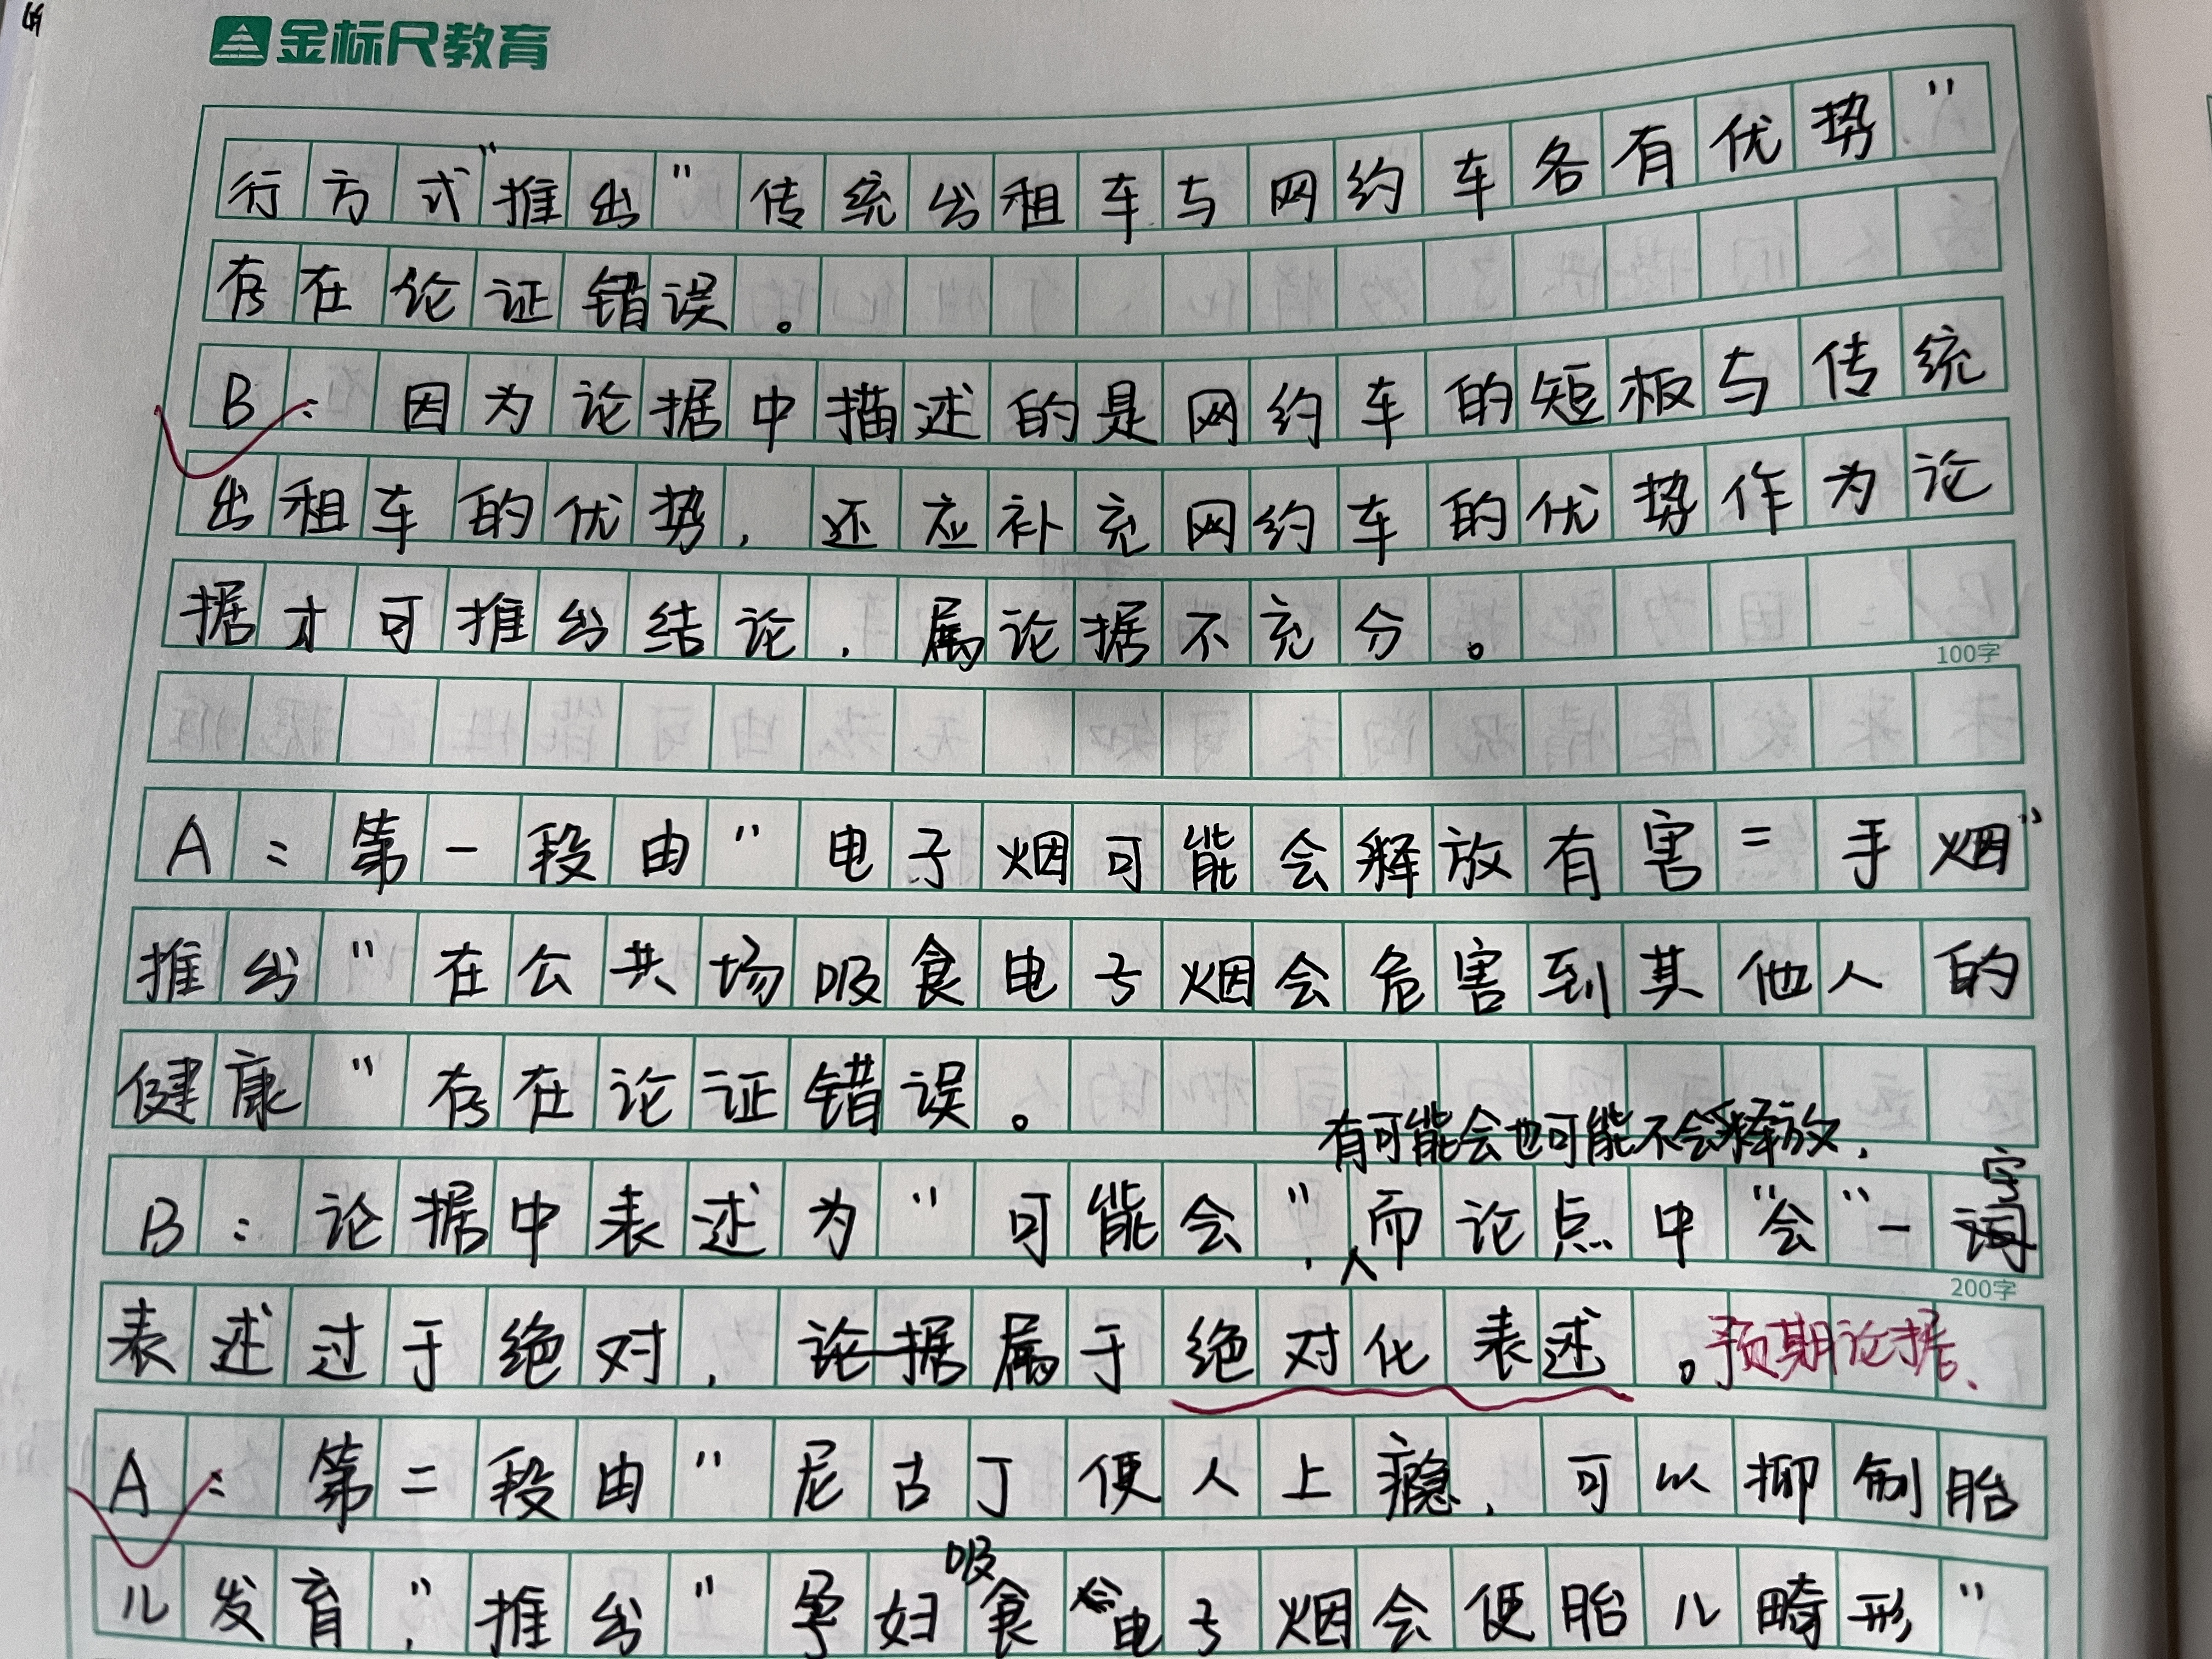 金标尺教育
行方式"推出"传统出租车与网约车各有优势"
存在论证错误。
B：因为论据中描述的是网约车的短板与传统
出租车的优势，还应补充网约车的优势作为论
据才可推出结论，属论据不充分。
100字
A：第一段由"电子烟可能会释放有害二手烟"
推出"在公共场吸食电子烟会危害到其他人的
健康"存在论证错误。
有可能会也可能不会释放，
字
B：论据中表述为"可能会"，而论点中"会"一词
200字
表述过于绝对，论据属于绝对化表述。预期论据、
A：第二段由"尼古丁使人上瘾，可以抑制胎
儿发育，"推出"孕妇吸食电子烟会使胎儿畸形"